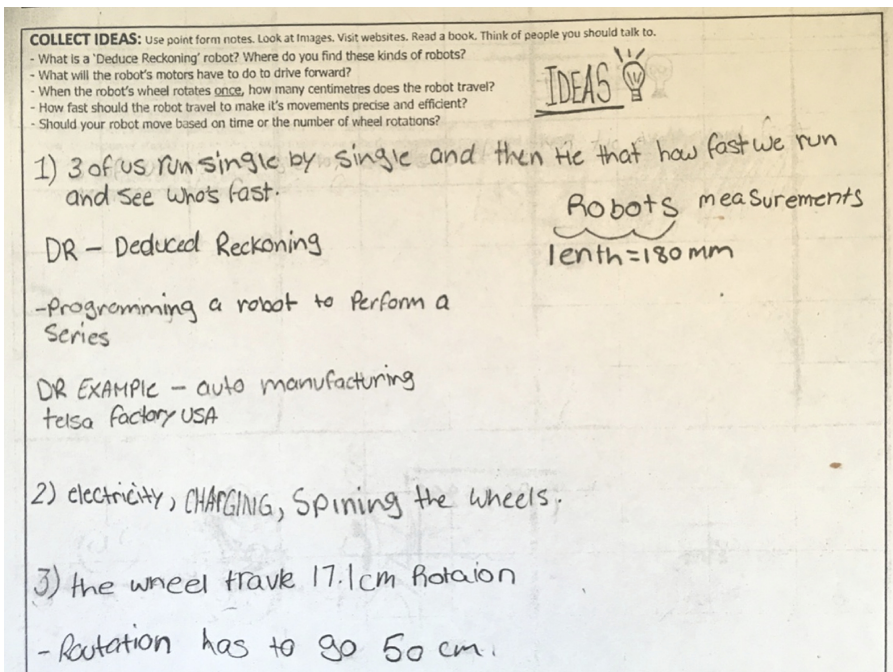 COLLECT IDEAS: Use point form notes. Look at Images. Visit websites. Read a book. Think of people you should talk to.
- What is a 'Deduce Reckoning' robot? Where do you find these kinds of robots?
- What will the robot's motors have to do to drive forward?
- When the robot's wheel rotates once, how many centimetres does the robot travel?
- How fast should the robot travel to make it's movements precise and efficient?
- Should your robot move based on time or the number of wheel rotations?
IDEAS
1) 3 of us run single by single and then tie that how fast we run
and see who's fast.
Robots measurements
lenth=180mm
DR - Deduced Reckoning
-Programming a robot to Perform a
Series
DR EXAMPlE - auto manufacturing
telsa factory USA
2) electricity, CHARGING, Spining the wheels.
3) the wheel travle 17.1cm Rotaion
- Routation has to go 50 cm.